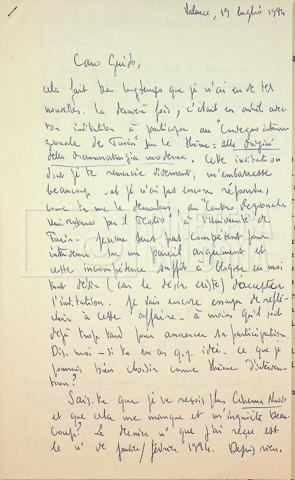 Valence, 19 luglio 1984
Caro Guido,
cela fait bien longtemps que je n'ai eu de tes
nouvelles. La dernière fois, c'étant en avril avec
ton invitation à participer au "Convegno intern
zionale de Turin" sur le thème: alle origini
della drammaturgia moderna. Cette invitation
dont je te remercie vivement, m'embarrasse
beaucoup - et je n'ai pas encore répondu,
comme tu me le demandais, au "Centro Regionale
Universitario per il Teatro" à l'Université de
Turin. Je me sens pas compétent pour
intervenir un pareil argument et
cette incompétence suffit à en moi
tout désir (car le désir existe) d'accepter
l'invitation. Je vais encore essayer de réflé-
chir à cette affaire - à moins qu'il soit
déjà trop tard pour annoncer sa participation.
Dis-moi si tu en as q.q. idée ce que je
pourrais bien choisir comme thème d'interven-
tion?
Sais-tu que je ne reçois plus Cinema Nuovo
et que cela me manque et m'inquiète beau-
coup? Le dernier n° que j'ai reçu est
le n° de janvier/février 1984. Depuis rien.